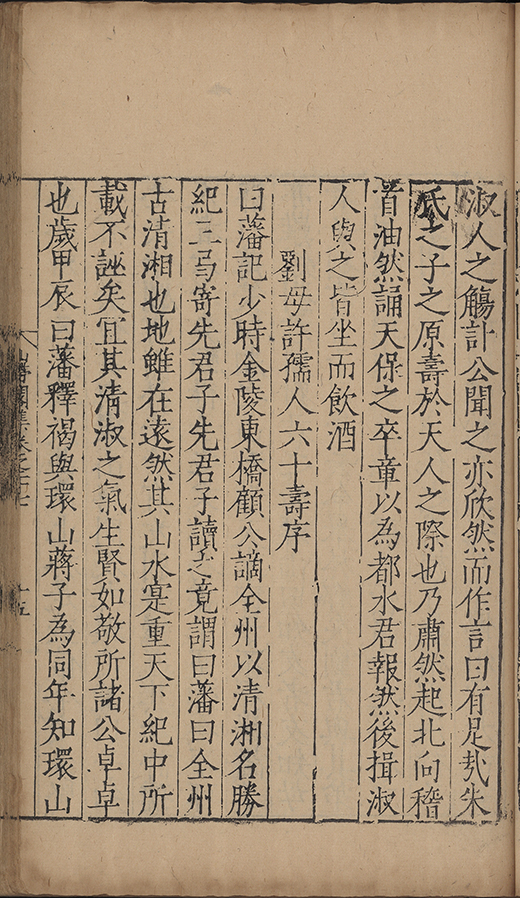 淑人之觴計公聞之亦欣然而作言曰有是㢤朱
氏之子之原壽於天人之際也乃肅然起北向稽
首油然誦天保之卒章以為都水君報然後揖淑
人與之皆坐而飲酒
劉母許孺人六十壽序
曰藩記少時金陵東橋顧公謫全州以清湘名勝
紀三弓寄先君子先君子讀之竟謂曰藩曰全州
古清湘也地雖在遠然其山水寔重天下紀中所
載不誣矣宜其清淑之氣生賢如敬所諸公卓卓
也歲甲辰曰藩釋褐與環山蔣子為同年知環山
集卷之
十五